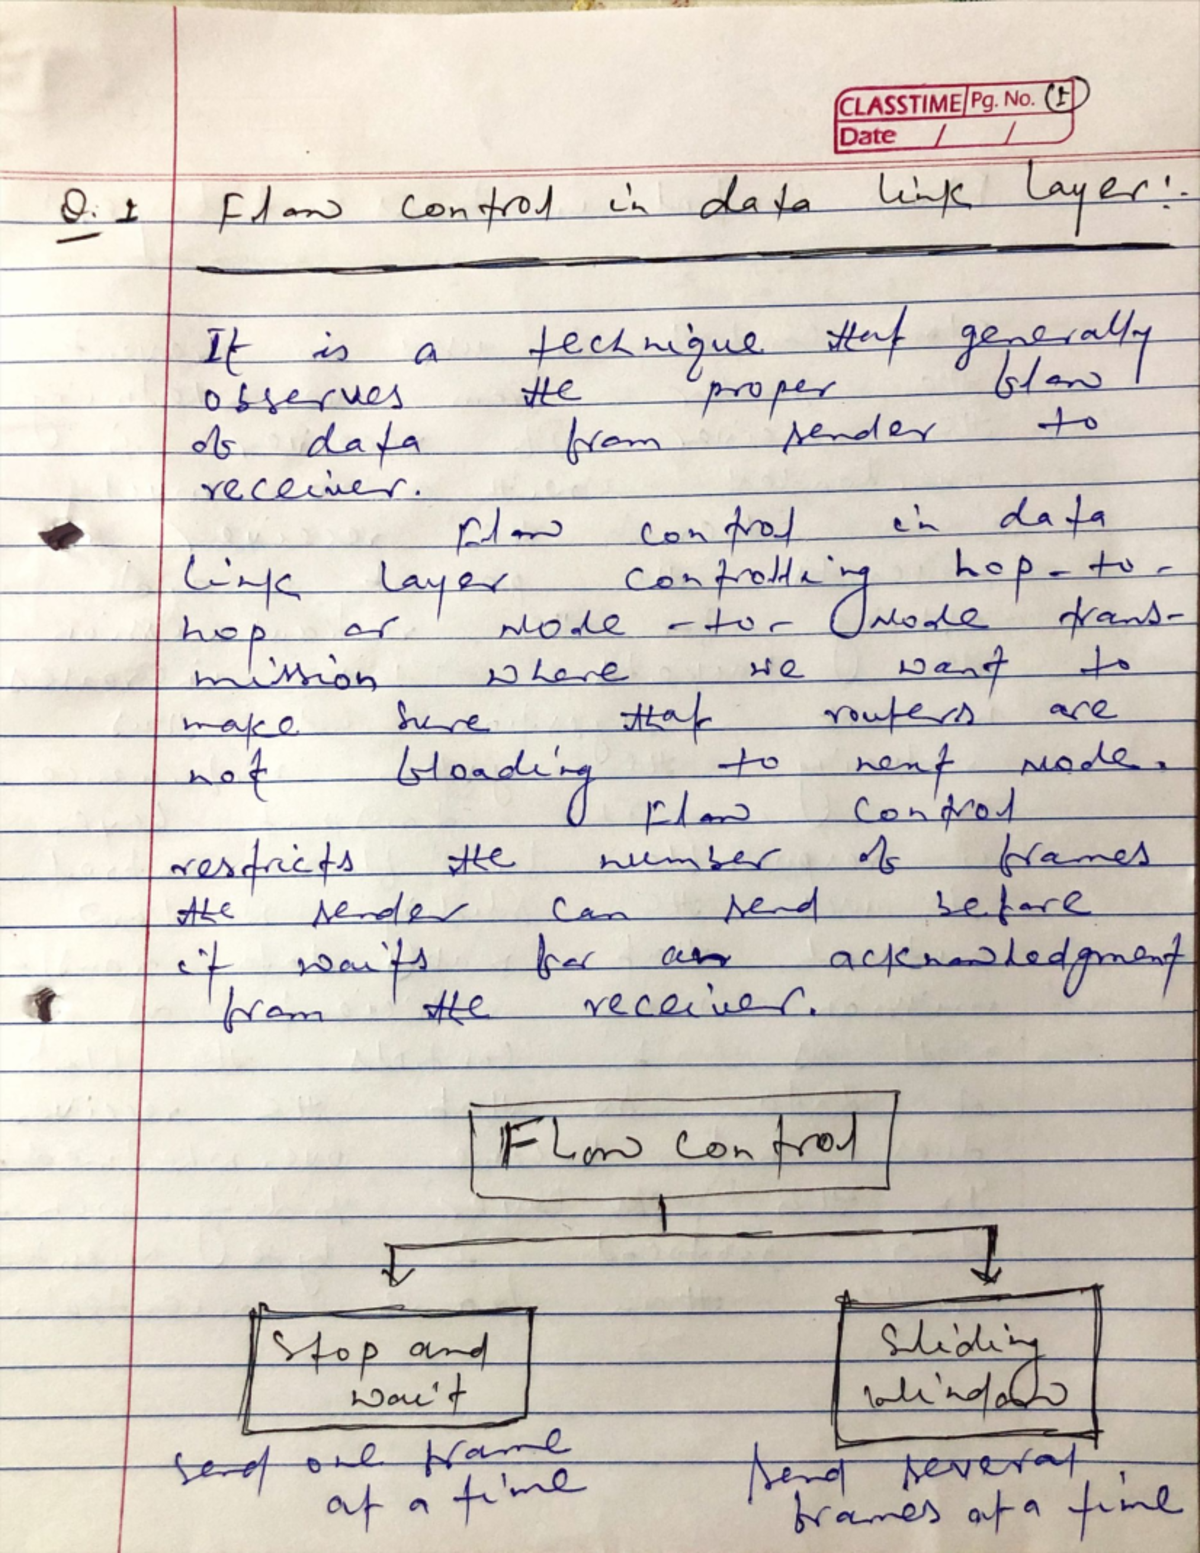 CLASSTIME Pg. No. 1
Date / /
Q. 1 Flow control in data link layer:-
It is a technique that generally
observes the proper flow
of data from sender to
receiver.
Flow control in data
link layer controlling hop-to-
hop or Node-to-Node trans-
mission where we want to
make sure that routers are
not floading to next node.
Flow control
restricts the number of frames
the sender can send before
it waits for an acknowledgment
from the receiver.
Flow control
Stop and
wait
Sliding
Window
send one frame
at a time
send several
frames at a time